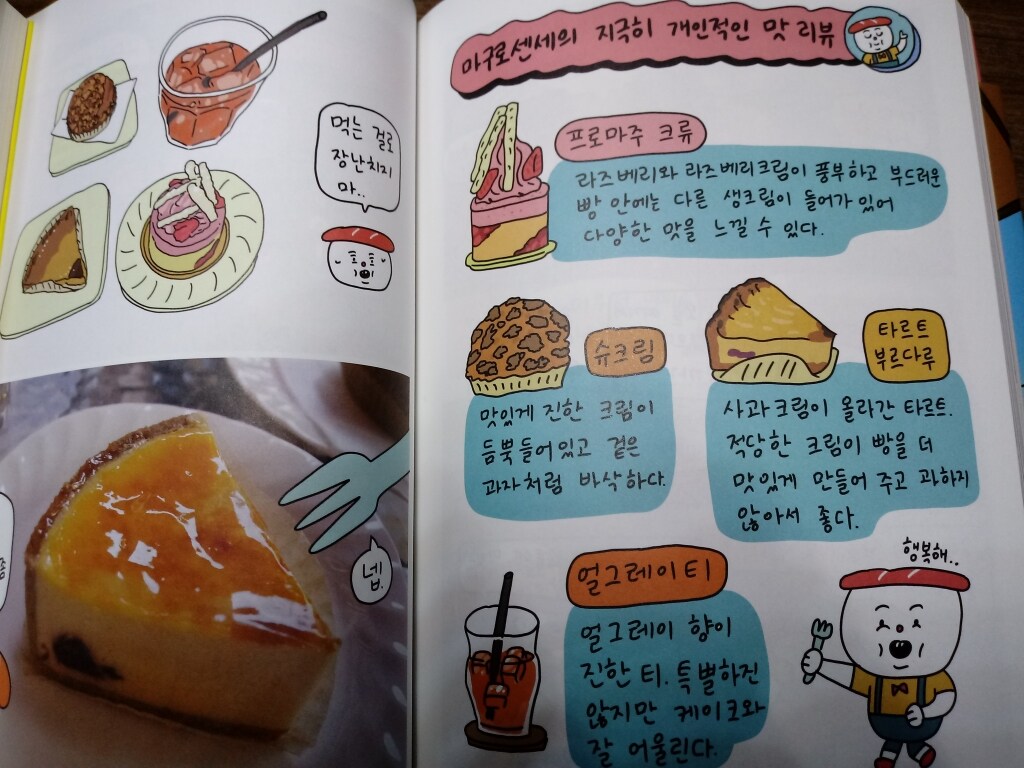 먹는 걸로
장난치지
마..
넵.
마구로센세의 지극히 개인적인 맛 리뷰
프로마주 크류
라즈베리와 라즈베리크림이 풍부하고 부드러운
빵 안에는 다른 생크림이 들어가 있어
다양한 맛을 느낄 수 있다.
슈크림
맛있게 진한 크림이
듬뿍들어있고 겉은
과자처럼 바삭하다.
타르트
부르다루
사과크림이 올라간 타르트.
적당한 크림이 빵을 더
맛있게 만들어 주고 과하지
않아서 좋다.
얼그레이티
얼그레이 향이
진한 티. 특별하진
않지만 케이크와
잘 어울린다.
행복해..